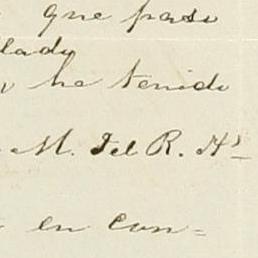 que paso
lado
he tenido
M. Del R. H^s
en con=